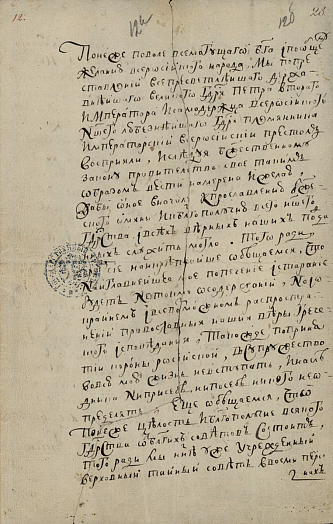 12.
12а
12б
23
Понеже поволе всемогущаго бга ипообщему
желанию всеросіиского народа, мы попре
ставлениі всепресветлеишаго держа
внеишаго великого гдря петра втораго
императора исамодержца всеросіиского
ншего любезнеишаго гдря племянника
императорскиі всеросіискиі престолъ
восприяли, иследуя бжественному
закону правителство свое такимъ
образомъ вести намерена ижелаю,
дабы оное вначале кпрославлению бже
ского имяни иблагополучию всего ншего
гдрства ивсехъ верныхъ нашихъ подда
нныхъ служить могло. Того ради чрезъ
сие наикрепчаише обещаемся, что
наиглавнеишее мое попечение истарание
будетъ нетокмо осодержаниі, но ио
краинемъ ивсевозможномъ распростра
нениі православныя нашея веры грече
ского исповедания, такожде поприня
тиі короны росіискоі, всупружество
вовсю мою жизнь невступать, инаслѣ
дника ниприсебе, нипосебе никого нео
пределять. Еще обещаемся, что
понеже целость иблагополучие всякого
гдрства отблагихъ советовъ состоитъ,
того ради мы ныне уже учрежденныі
верховныі таиныі советъ ввосми персо
нахъ